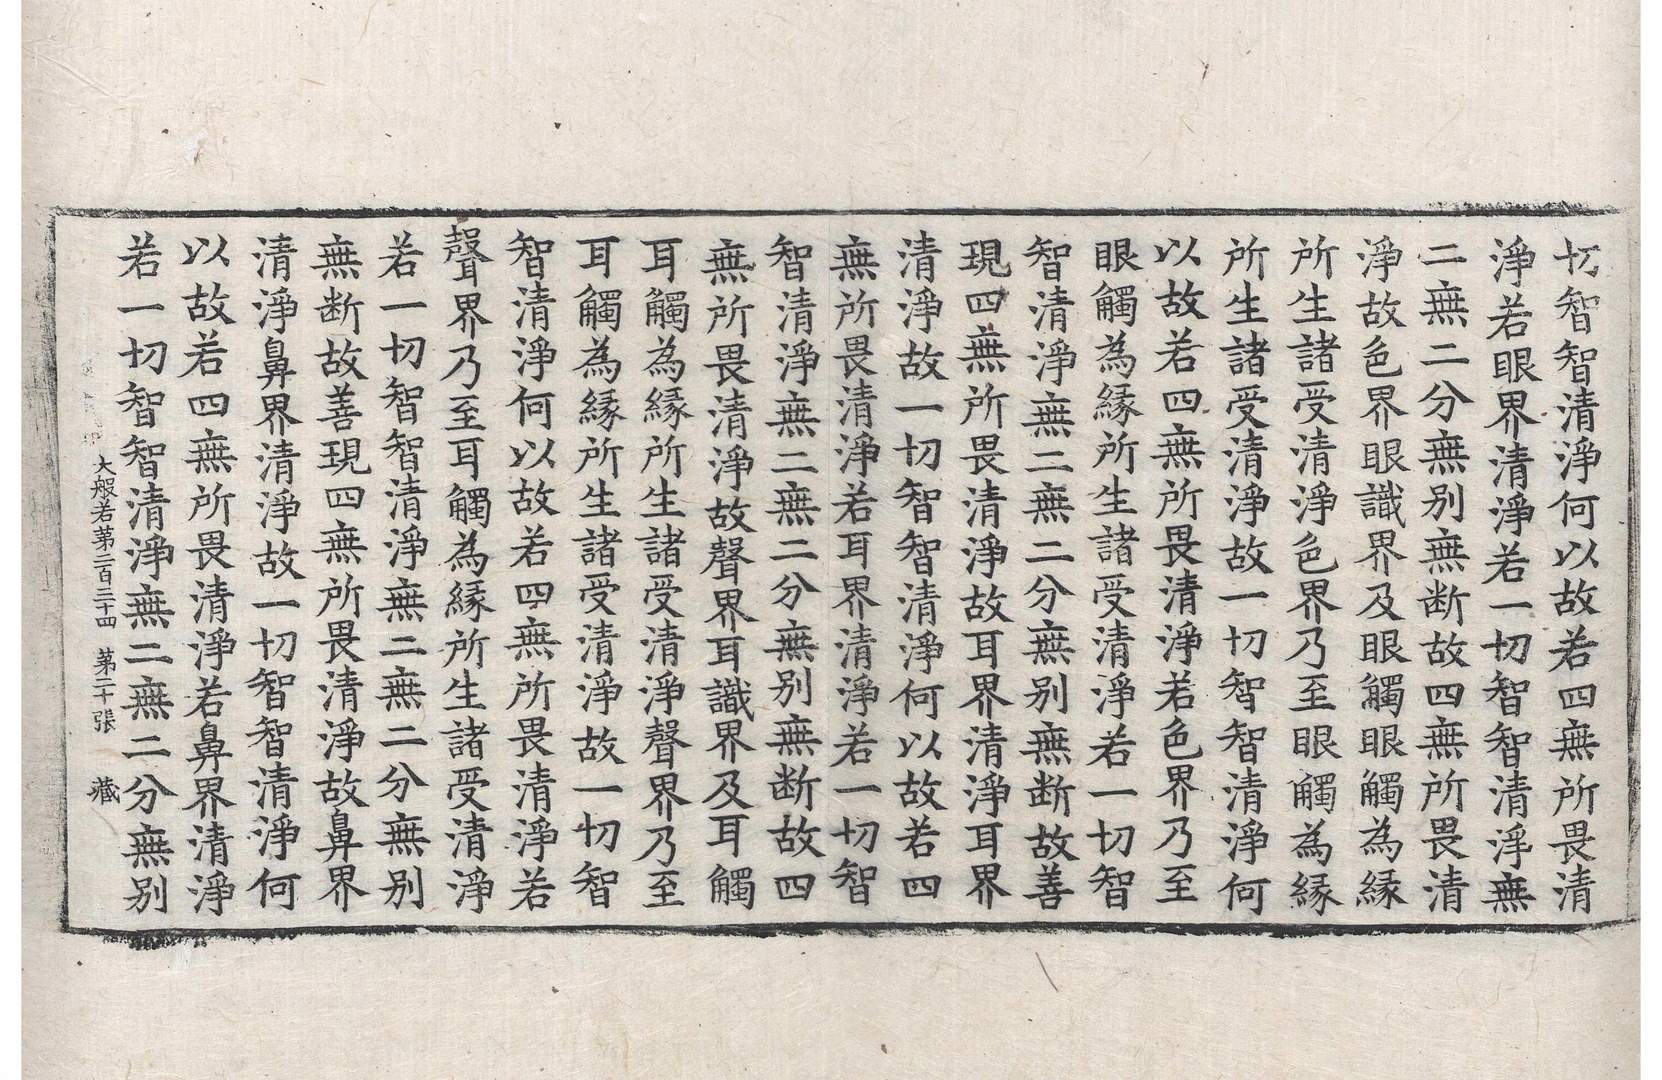 切智智清淨何以故若四無所畏清
淨若眼界清淨若一切智智清淨無
二無二分無別無断故四無所畏清
淨故色界眼識界及眼觸眼觸為緣
所生諸受清淨色界乃至眼觸為緣
所生諸受清淨故一切智智清淨何
以故若四無所畏清淨若色界乃至
眼觸為緣所生諸受清淨若一切智
智清淨無二無二分無別無断故善
現四無所畏清淨故耳界清淨耳界
清淨故一切智智清淨何以故若四
無所畏清淨若耳界清淨若一切智
智清淨無二無二分無別無断故四
無所畏清淨故聲界耳識界及耳觸
耳觸為緣所生諸受清淨聲界乃至
耳觸為緣所生諸受清淨故一切智
智清淨何以故若四無所畏清淨若
聲界乃至耳觸為緣所生諸受清淨
若一切智智清淨無二無二分無別
無断故善現四無所畏清淨故鼻界
清淨鼻界清淨故一切智智清淨何
以故若四無所畏清淨若鼻界清淨
若一切智智清淨無二無二分無別
大般若第二百三十四 第二十張 藏